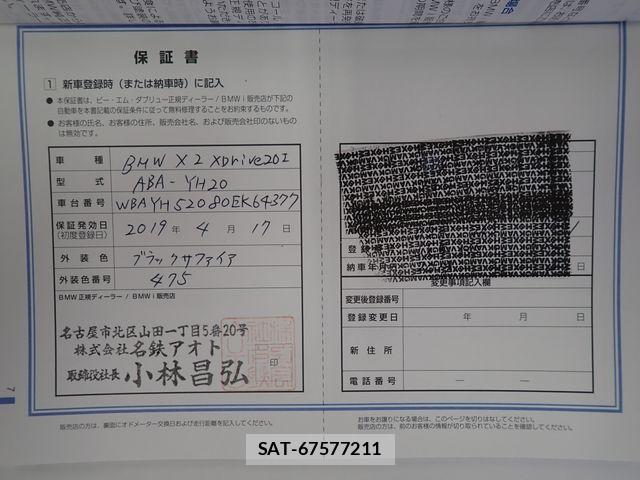 保証書
1 新車登録時（または納車時）に記入
● 本保証書は、ビー・エム・ダブリュー正規ディーラー / BMW i 販売店が下記の
自動車を本書記載の保証条件に従って無料修理することをお約束するものです。
● お客様の氏名、お客様の住所、販売会社名、および販売会社印のないもの
は無効です。
車種 BMW X2 XDrive20I
型式 ABA-YH20
車台番号 WBAYH52080EK64377
保証発効日 2019年 4月 17日
(初度登録日)
外装色 ブラックサファイア
外装色番号 475
BMW正規ディーラー / BMW i 販売店
名古屋市北区山田一丁目5番20号
株式会社 名鉄アオト
取締役社長 小林昌弘
印
販売店の方は、裏面にオドメーター交換日および走行距離を記入してください。
7
納車年月 日
変更事項記入欄
変更後登録番号
登録変更日 年 月 日
新住所
電話番号 — —
お車をお譲りになる場合は、このページを切りはなしてください。
販売店の方は、前のお客様の情報が切り取られていることを確認してください。
SAT-67577211